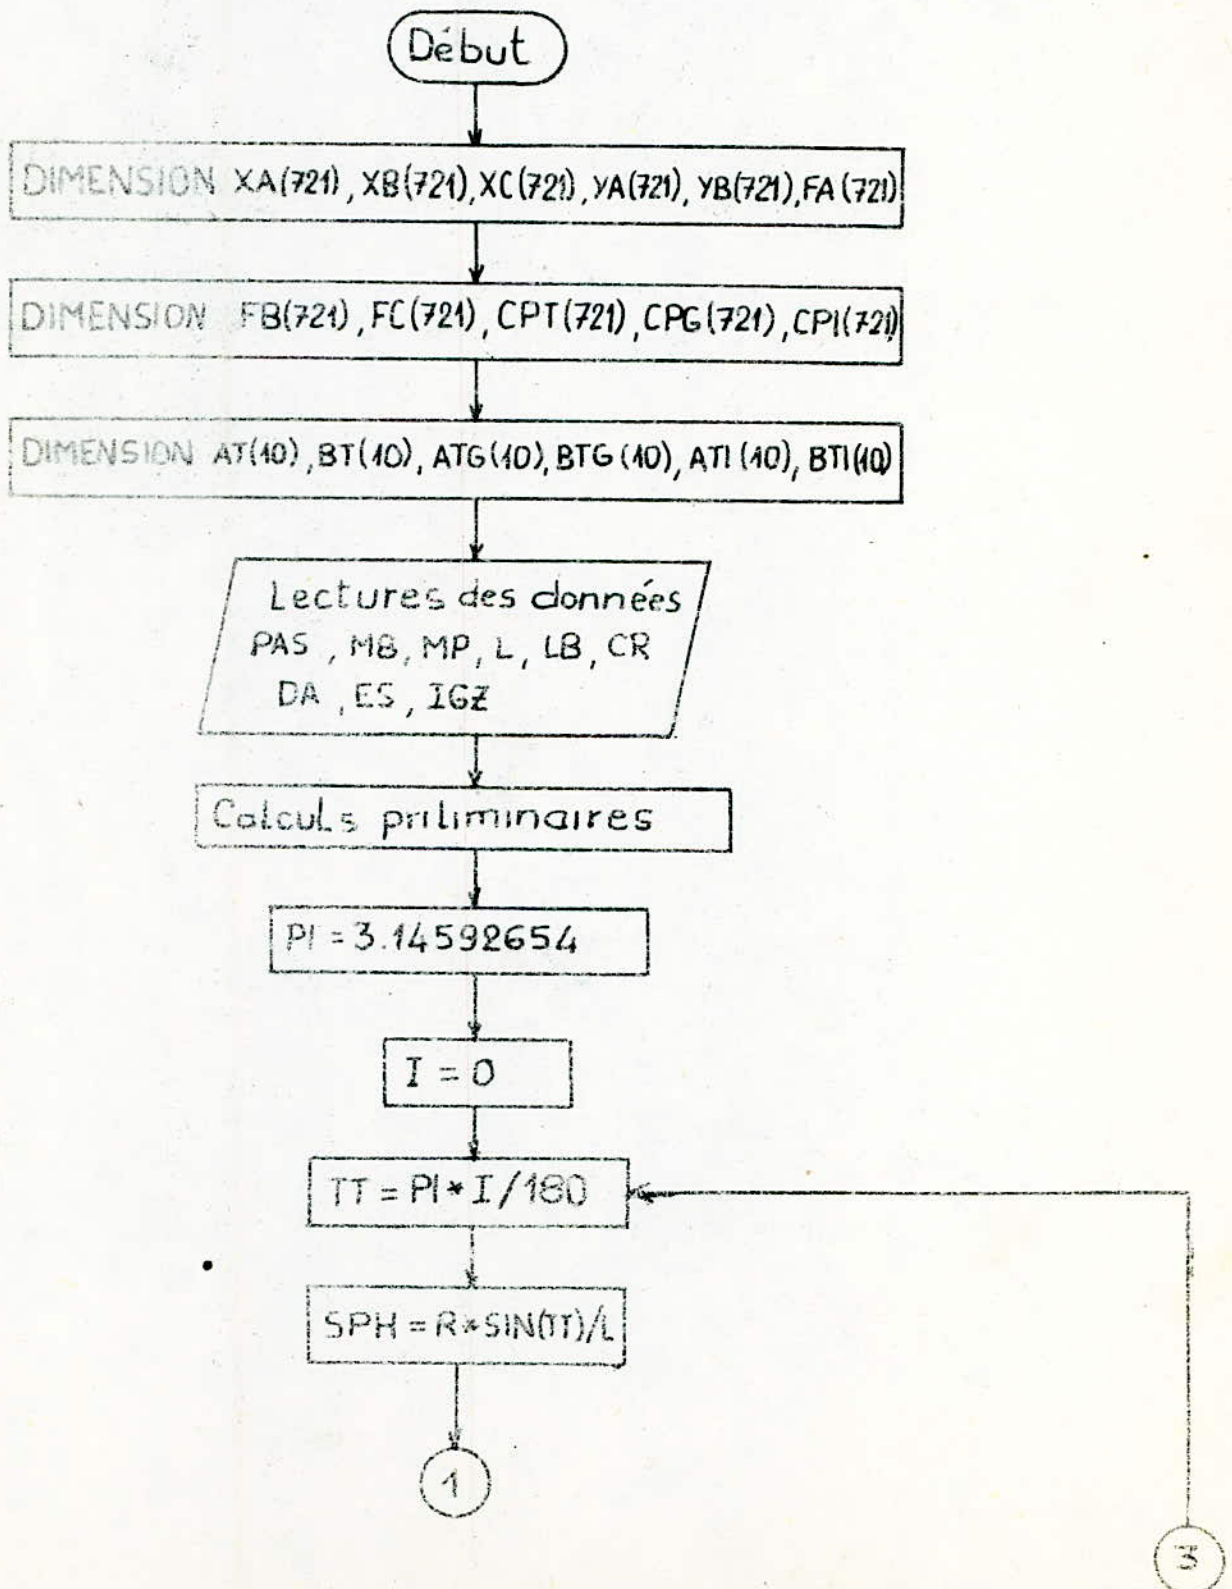 Début
DIMENSION XA(721), XB(721), XC(721), YA(721), YB(721), FA(721)
DIMENSION FB(721), FC(721), CPT(721), CPG(721), CPI(721)
DIMENSION AT(10), BT(10), ATG(10), BTG(10), ATI(10), BTI(10)
Lectures des données
PAS, MB, MP, L, LB, CR
DA, ES, IGZ
Calculs priliminaires
PI = 3.14592654
I = 0
TT = PI*I/180
SPH = R*SIN(TT)/L
1
3